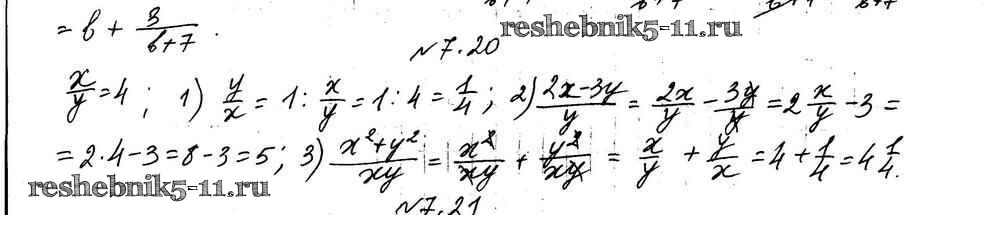 = b + 3/(b+7).
reshebnik5-11.ru
№7.20
x/y = 4; 1) y/x = 1 : x/y = 1 : 4 = 1/4; 2) (2x-3y)/y = 2x/y - 3y/y = 2 x/y - 3 =
= 2·4-3 = 8-3 = 5; 3) (x²+y²)/xy = x²/xy + y²/xy = x/y + y/x = 4 + 1/4 = 4 1/4.
reshebnik5-11.ru
№7.21